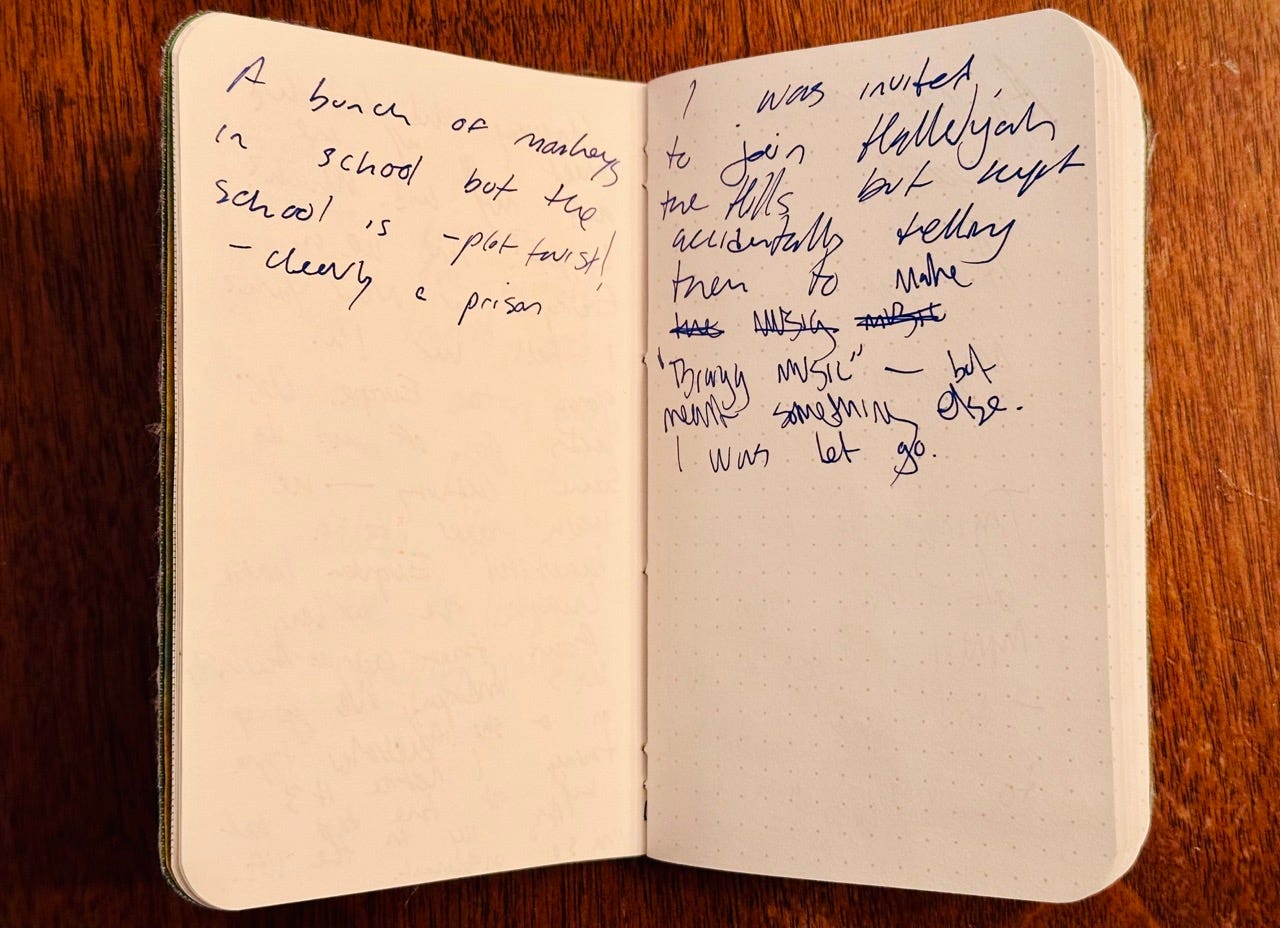 A bunch of monkeys
in school but the
school is - plot twist!
- clearly a prison
I was invited
to join Hallelujah
the Hills but kept
accidentally telling
them to make
music music
" music" — but
meant something else.
I was let go.